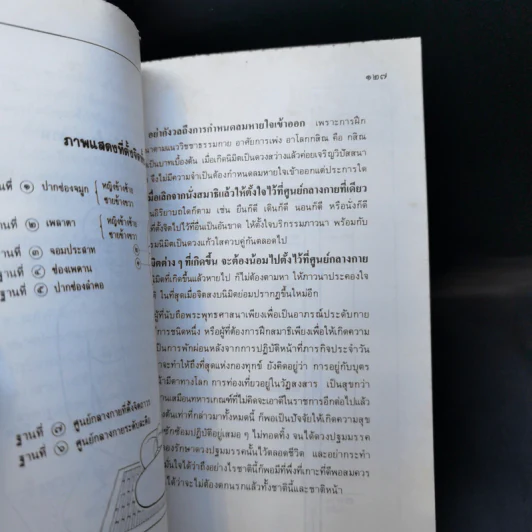 ภาพแสดงที่ตั้งจิต
ฐานที่ ๑ ปากช่องจมูก หญิงข้างซ้าย ชายข้างขวา
ฐานที่ ๒ เพลาตา หญิงข้างซ้าย ชายข้างขวา
ฐานที่ ๓ จอมประสาท
ฐานที่ ๔ ช่องเพดาน
ฐานที่ ๕ ปากช่องลำคอ
ฐานที่ ๗ ศูนย์กลางกายที่ตั้งจิตถาวร
ฐานที่ ๖ ศูนย์กลางกายระดับสะดือ
๑๒๗
อย่ากังวลถึงการกำหนดลมหายใจเข้าออก เพราะการฝึก
อาศัยตามแนววิชชาธรรมกาย อาศัยการเพ่ง อาโลกกสิณ คือ กสิณ
เป็นบาทเบื้องต้น เมื่อเกิดนิมิตเป็นดวงสว่างแล้วค่อยเจริญวิปัสสนา
จึงไม่มีความจำเป็นต้องกำหนดลมหายใจเข้าออกแต่ประการใด
เมื่อเลิกจากนั่งสมาธิแล้วให้ตั้งใจไว้ที่ศูนย์กลางกายที่เดียว
นอิริยาบถใดก็ตาม เช่น ยืนก็ดี เดินก็ดี นอนก็ดี หรือนั่งก็ดี
ที่ตั้งจิตไปไว้ที่อื่นเป็นอันขาด ให้ตั้งใจบริกรรมภาวนา พร้อมกับ
รรมนิมิตเป็นดวงแก้วใสควบคู่กันตลอดไป
มิตต่าง ๆ ที่เกิดขึ้น จะต้องน้อมไปตั้งไว้ที่ศูนย์กลางกาย
มิตที่เกิดขึ้นแล้วหายไป ก็ไม่ต้องตามหา ให้ภาวนาประคองใจ
ดี ในที่สุดเมื่อจิตสงบนิมิตย่อมปรากฏขึ้นใหม่อีก
ผู้ที่นับถือพระพุทธศาสนาเพียงเพื่อเป็นอาภรณ์ประดับกาย
การชนิดหนึ่ง หรือผู้ที่ต้องการฝึกสมาธิเพียงเพื่อให้เกิดความ
เป็นการพักผ่อนหลังจากการปฏิบัติหน้าที่ภารกิจประจำวัน
จะทำให้ถึงที่สุดแห่งกองทุกข์ ยังคิดอยู่ว่า การอยู่กับบุตร
น้ามีตาทางโลก การท่องเที่ยวอยู่ในวัฏสงสาร เป็นสุขกว่า
านเสมือนทหารเกณฑ์ที่ไม่คิดจะเอาดีในราชการอีกต่อไปแล้ว
องต้นเท่าที่กล่าวมาทั้งหมดนี้ ก็พอเป็นปัจจัยให้เกิดความสุข
ซักซ้อมปฏิบัติอยู่เสมอ ๆ ไม่ทอดทิ้ง จนได้ดวงปฐมมรรค
องรักษาดวงปฐมมรรคนั้นไว้ตลอดชีวิต และอย่ากระทำ
มั่นใจได้ว่าถึงอย่างไรชาตินี้ก็พอมีที่พึ่งที่เกาะที่ดีพอสมควร
ได้ว่าจะไม่ต้องตกนรกแล้วทั้งชาตินี้และชาติหน้า